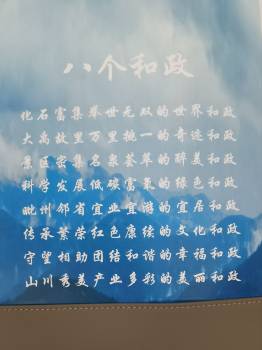 八个和政
化石富集举世无双的世界和政
大禹故里万里挑一的奇迹和政
景区密集名泉荟萃的醉美和政
科学发展低碳富氧的绿色和政
毗州邻省宜业宜游的宜居和政
传承繁荣红色康续的文化和政
守望相助团结和谐的幸福和政
山川秀美产业多彩的美丽和政